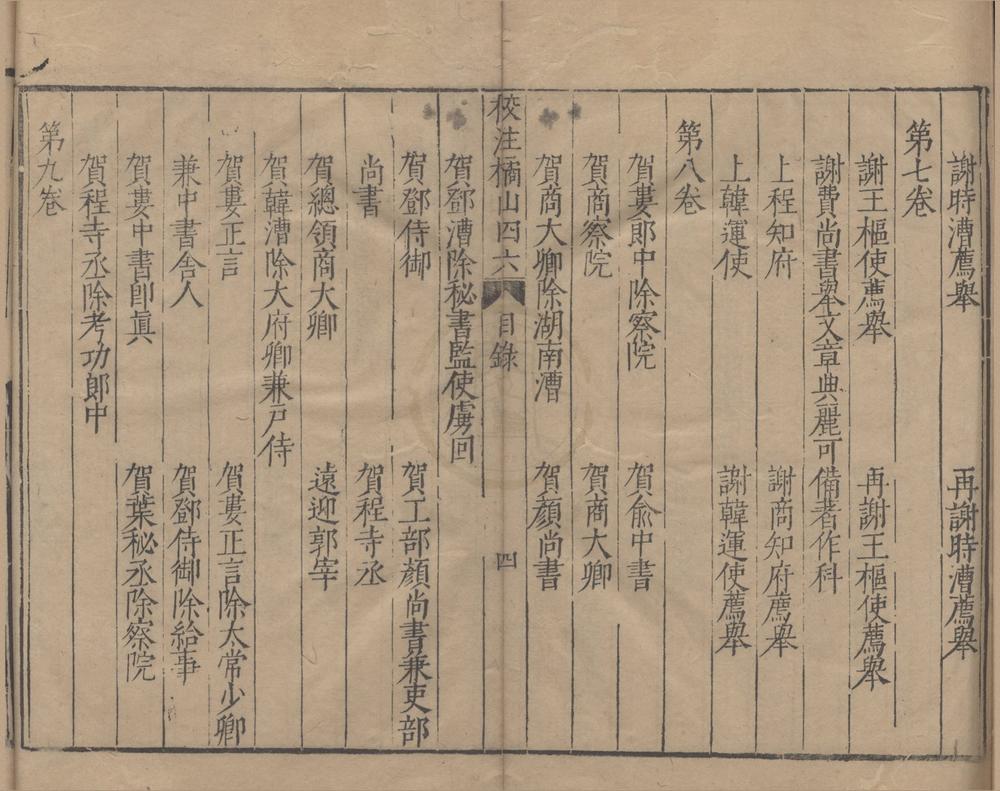 謝時漕薦舉　再謝時漕薦舉
第七卷
謝王樞使薦舉　再謝王樞使薦舉
謝費尚書舉文章典麗可備著作科
上程知府　謝商知府薦舉
上韓運使　謝韓運使薦舉
第八卷
賀婁郎中除察院　賀俞中書
賀商察院　賀商大卿
賀商大卿除湖南漕　賀顏尚書
校注橘山四六　目錄　四
賀鄧漕除秘書監使虜回
賀鄧侍御　賀工部顏尚書兼吏部
尚書　賀程寺丞
賀總領商大卿　遠迎郭宰
賀韓漕除大府卿兼戶侍
賀婁正言　賀婁正言除太常少卿
兼中書舍人　賀鄧侍御除給事
賀婁中書即眞　賀葉秘丞除察院
賀程寺丞除考功郎中
第九卷